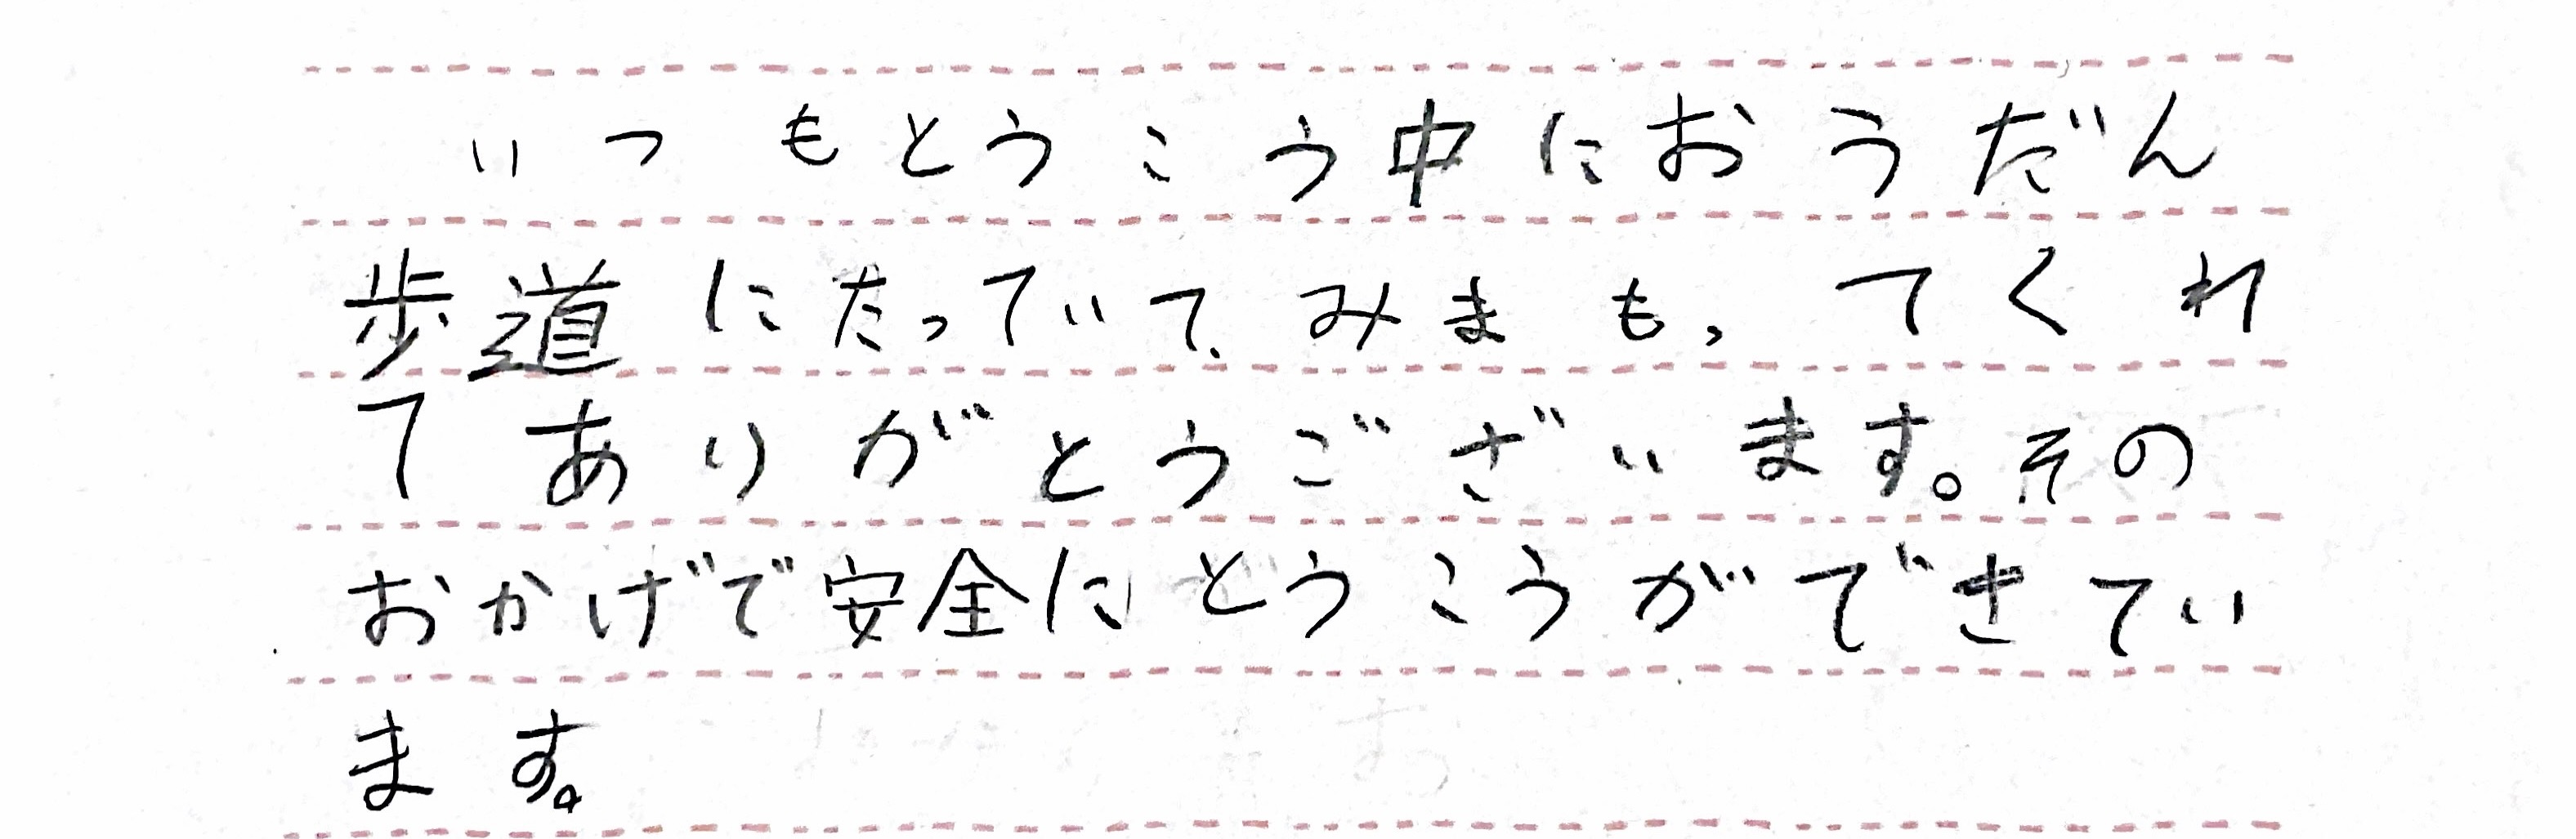 いつもとうこう中におうだん
歩道にたっていてみまもってくれ
てありがとうございます。その
おかげで安全にとうこうができてい
ます。